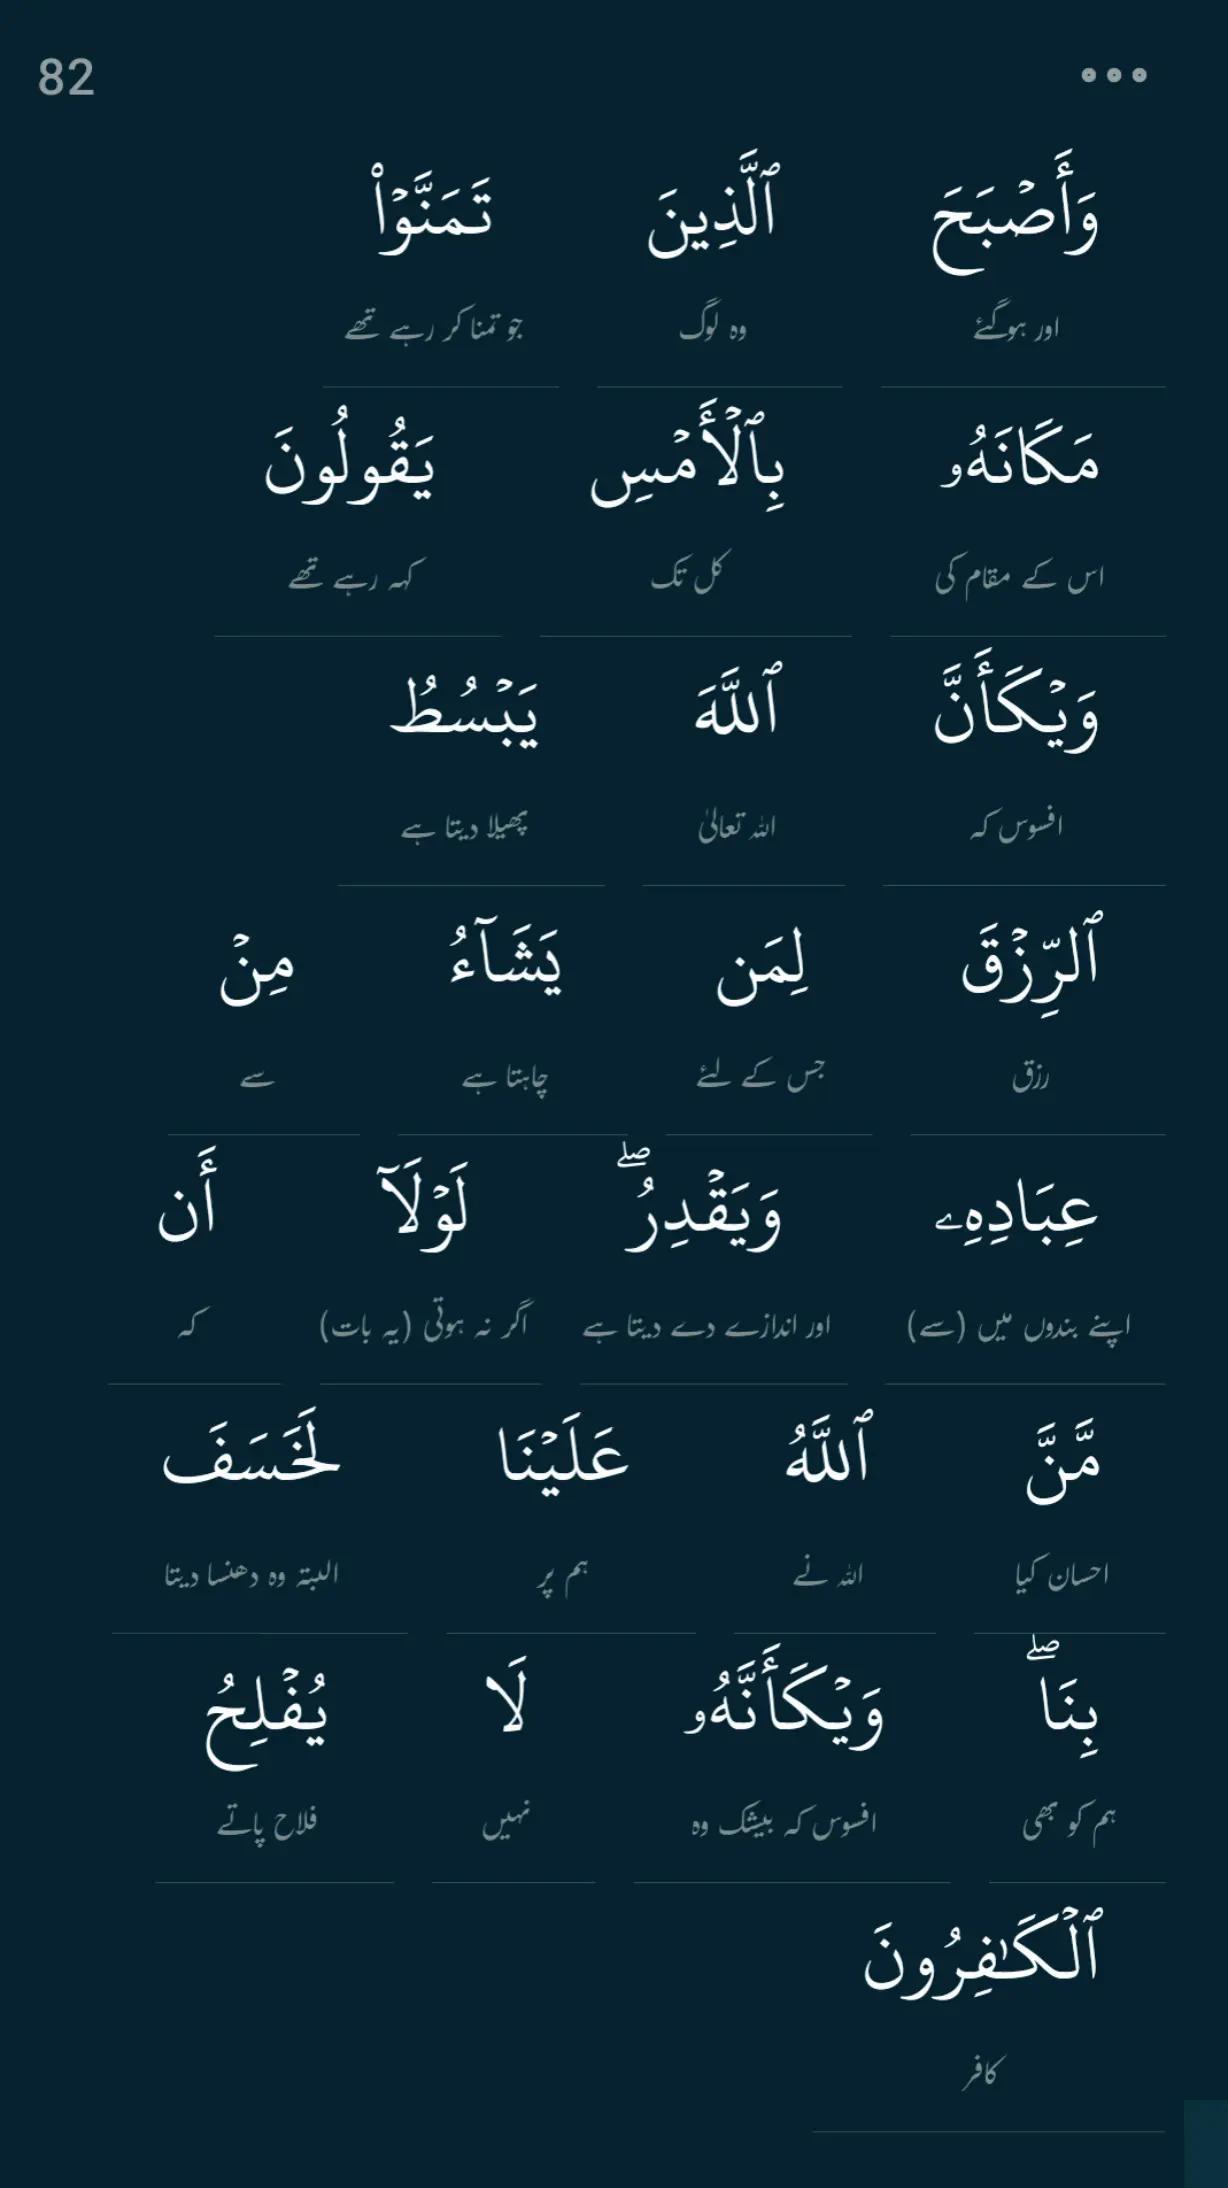 82
وَأَصۡبَحَ ٱلَّذِينَ تَمَنَّوۡاْ
اور ہوگئے وہ لوگ جو تمنا کر رہے تھے
مَكَانَهُۥ بِٱلۡأَمۡسِ يَقُولُونَ
اس کے مقام کی کل تک کہہ رہے تھے
وَيۡكَأَنَّ ٱللَّهَ يَبۡسُطُ
افسوس کہ اللہ تعالیٰ پھیلا دیتا ہے
ٱلرِّزۡقَ لِمَن يَشَآءُ مِنۡ
رزق جس کے لئے چاہتا ہے سے
عِبَادِهِۦ وَيَقۡدِرُۖ لَوۡلَآ أَن
اپنے بندوں میں (سے) اور اندازے دے دیتا ہے اگر نہ ہوتی (یہ بات) کہ
مَّنَّ ٱللَّهُ عَلَيۡنَا لَخَسَفَ
احسان کیا اللہ نے ہم پر البتہ وہ دھنسا دیتا
بِنَاۖ وَيۡكَأَنَّهُۥ لَا يُفۡلِحُ
ہم کو بھی افسوس کہ بیشک وہ نہیں فلاح پاتے
ٱلۡكَٰفِرُونَ
کافر